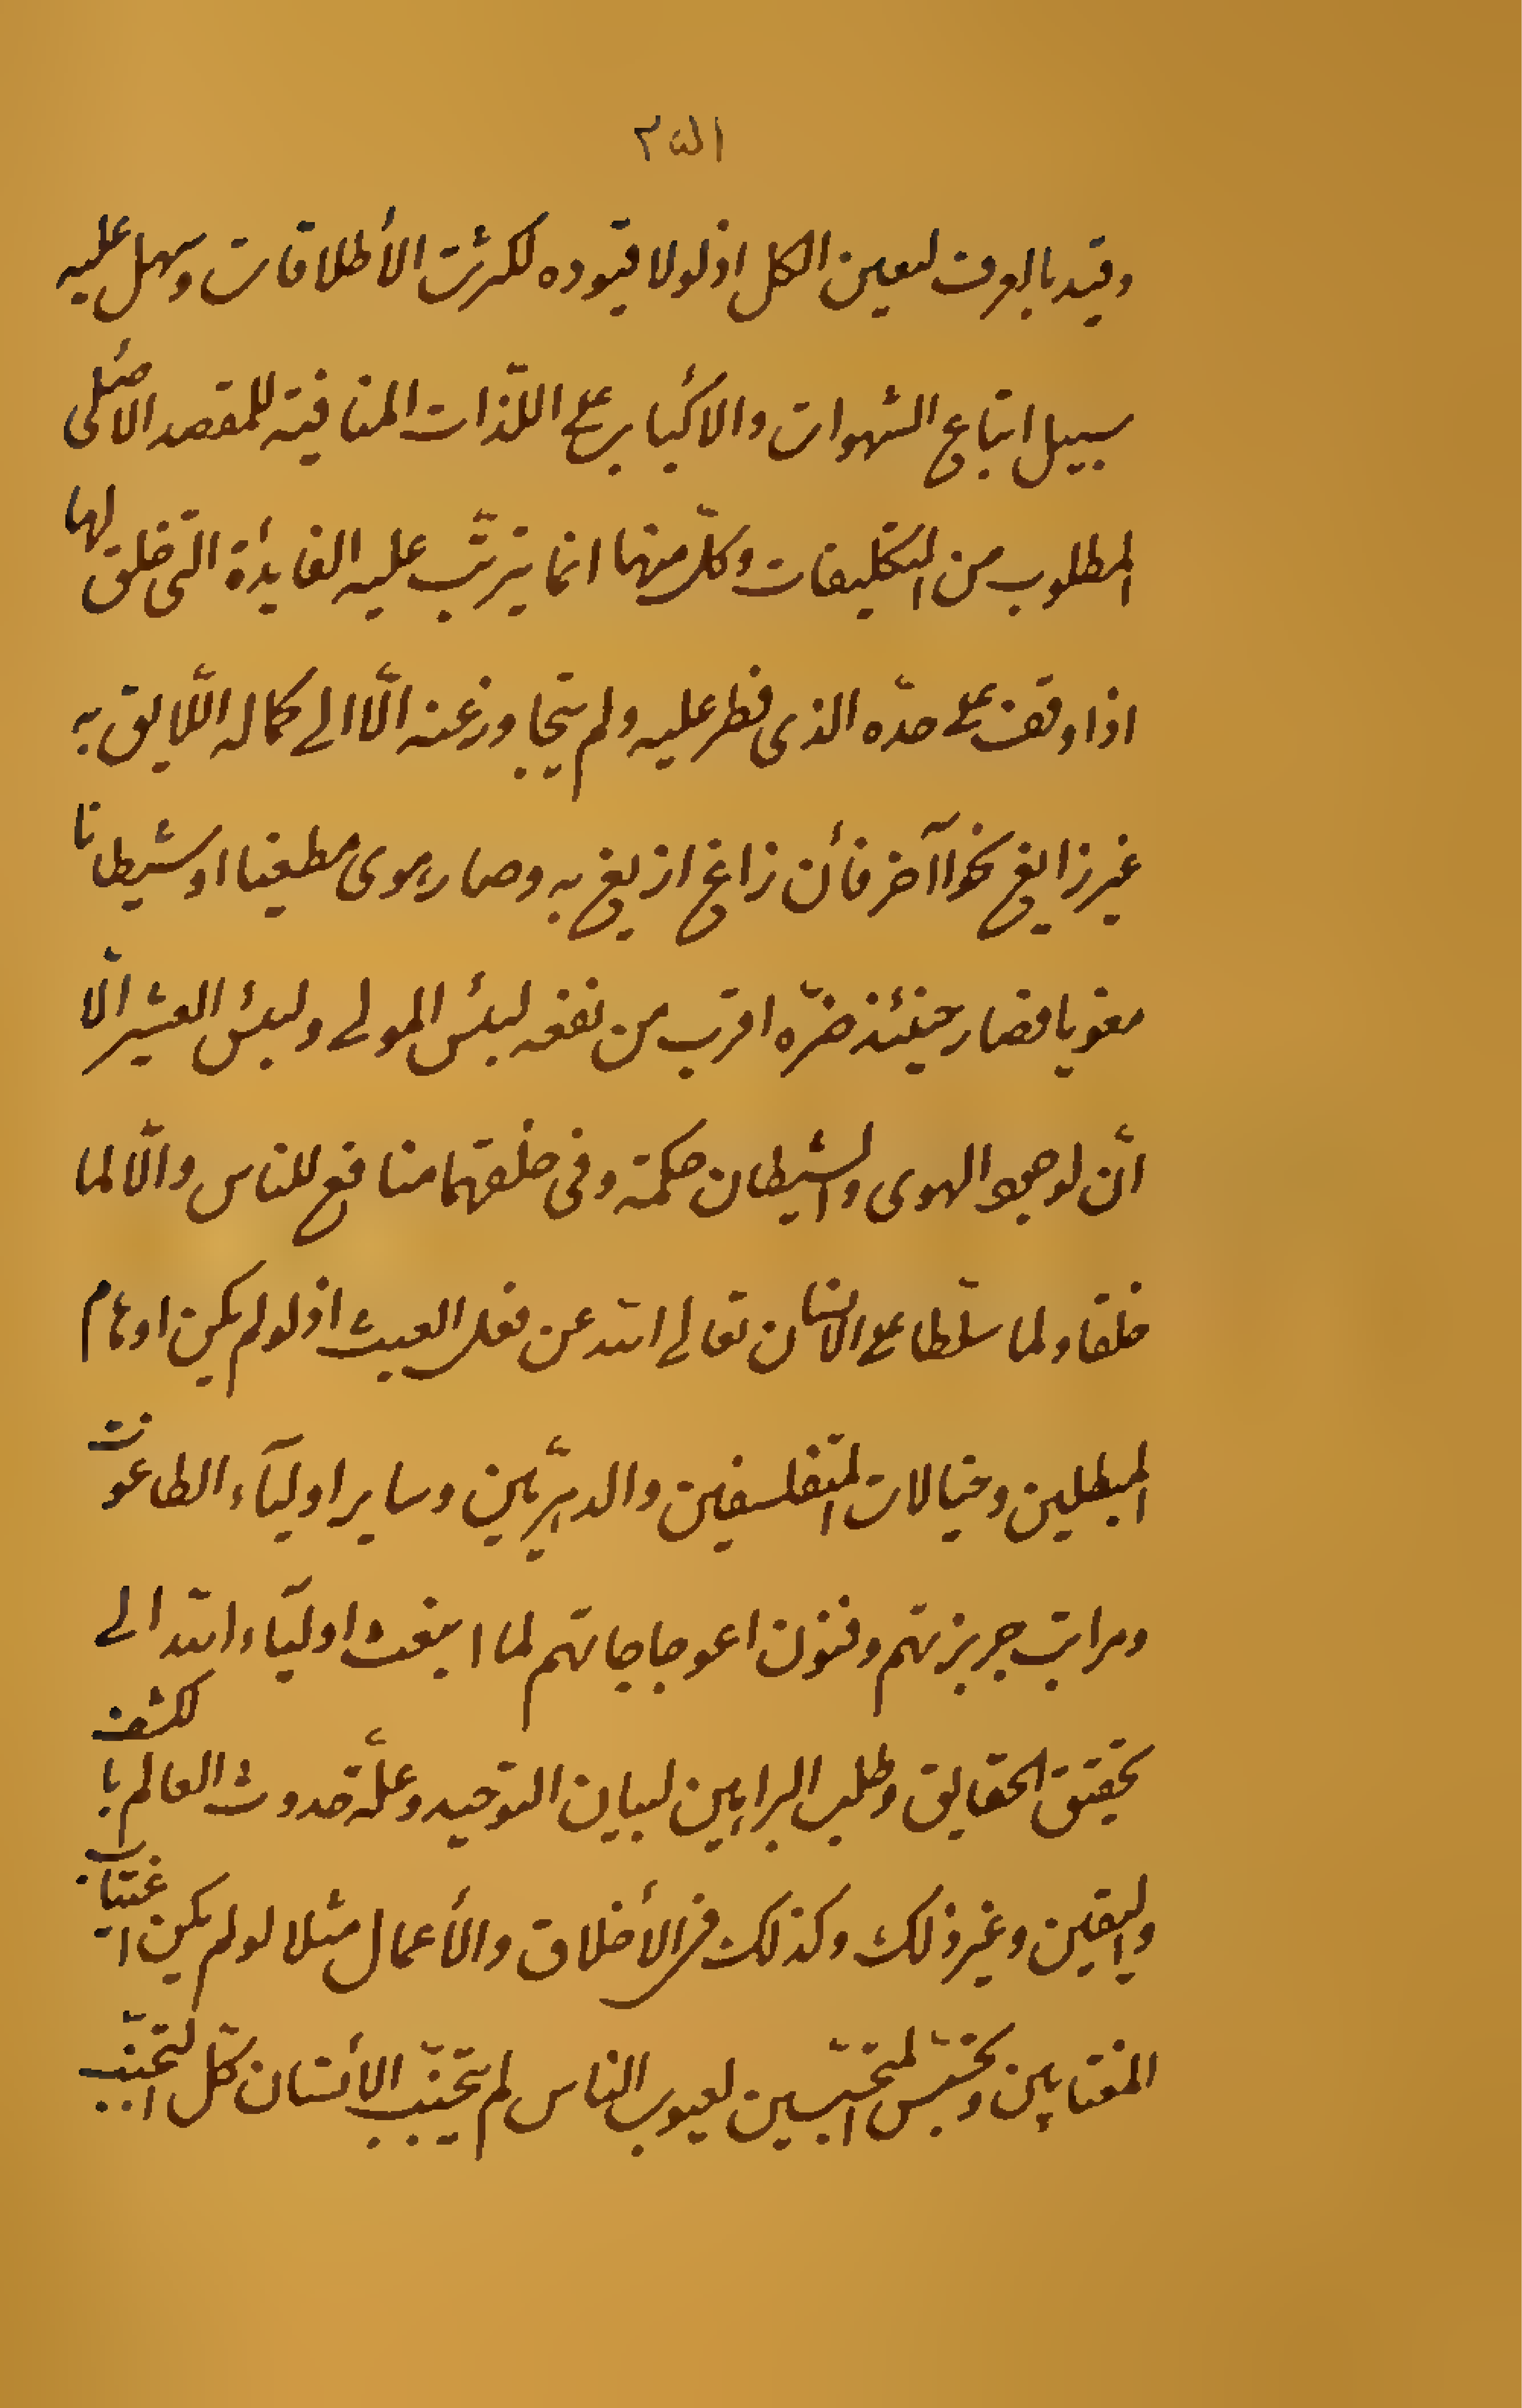 ٣٥١
وقيد بالعرف لعين الكل اذ لولا قيوده لكثرت الأطلاقات وسهل عليه
سبيل اتباع الشهوات والاكباب على اللذّات المنافية للمقصد الاصلى
المطلوب من التكليفات وكلّ منهما انما يترتّب عليه الفايدة التى خلق لها
اذا وقف على حدّه الذى فطر عليه ولم يتجاوز عنه الّا الى كماله اللّايق به
غير زايغ نحوا آخر فأن زاغ ازيغ به وصار هوى مطيعا او شيطانا
مغويا فصار حينئذ ضرّه اقرب من نفعه لبئس المولى ولبئس العشير الّا
انّ لوجود الهوى والشيطان حكمة وفى خلقهما منافع للناس والّا لما
خلقا ولما سلّطا على الانسان تعالى الله عن فعل العبث اذ لو لم يكن اوهام
المبطلين وخيالات المتفلسفين والدهريّين وساير اوليآء الطاغوت
ومراتب جربزتهم وفنون اعوجاجاتهم لما انبعث اوليآء الله الى
تحقيق الحقايق وطلب البراهين لبيان التوحيد وعلّة حدوث العالم بالكشف
واليقين وغير ذلك وكذلك فى الأخلاق والأعمال مثلا لو لم يكن اغتياب
المغتابين وتجسّس المتجسّسين لعيوب الناس لم يتجنّب الأنسان كلّ التجنّب